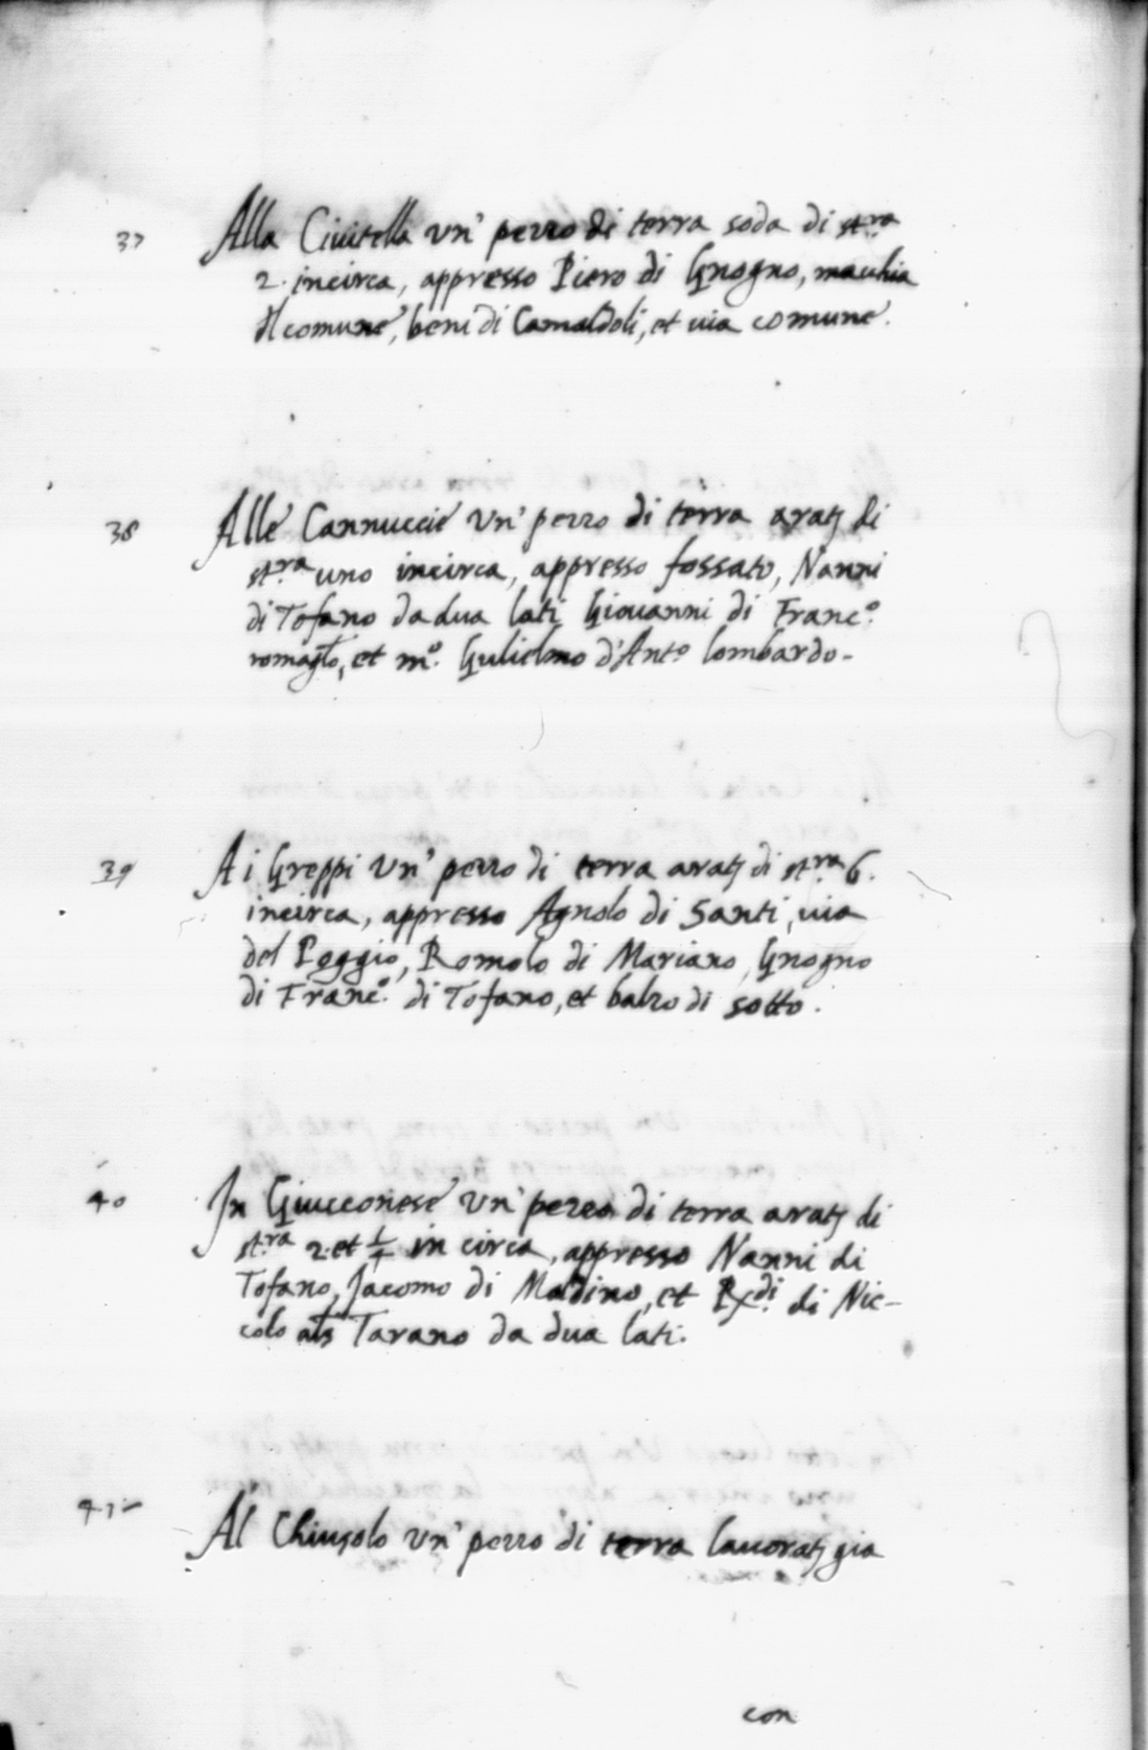 37 Alla Ciuitella vn' pezzo di terra soda di st.ra
2. incirca, appresso Piero di Gnogno, macchia
del comune, beni di Camaldoli, et uia comune.
38 Alle Cannuccie vn' pezzo di terra aratª di
st.ra uno incirca, appresso fossato, Nanni
di Tofano da dua lati Giouanni di Franc.o
romaglo, et m.o Gulielmo d'Ant.o lombardo-
39 Ai Greppi vn' pezzo di terra aratª di st.ra 6.
incirca, appresso Agnolo di Santi, uia
del Poggio, Romolo di Mariano, Gnogno
di Franc.o di Tofano, et balzo di sotto.
40 In Giucconese vn' pezzo di terra aratª di
st.ra 2. et 1/4 in circa, appresso Nanni di
Tofano, Jacomo di Maldino, et Rx.di di Nic-
colo als Tarano da dua lati.
41 Al Chiusolo vn' pezzo di terra lauoratª gia
con